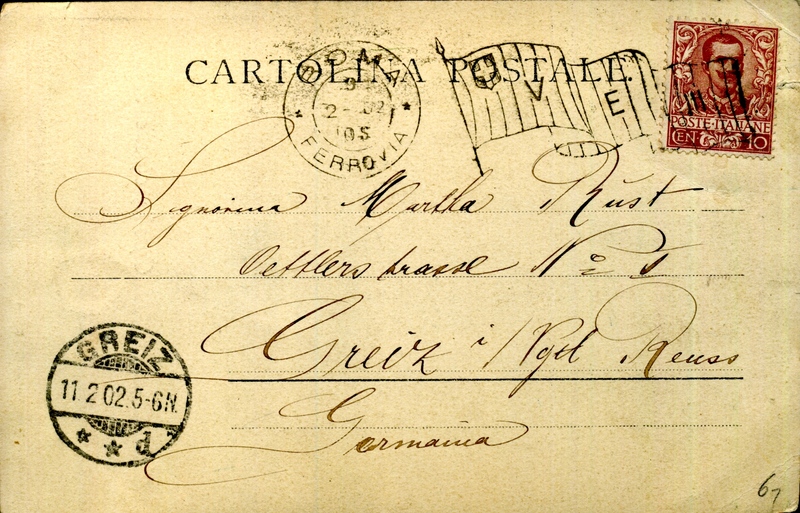 CARTOLINA POSTALE.
ROMA
9
2-02
10S
FERROVIA
V E
POSTE ITALIANE
CEN 10
Signorina Martha Rüst
Oettlerstrasse No 1
Greiz i/Vgtl Reuss
Germania
GREIZ
11 2 02. 5-6N.
d
67